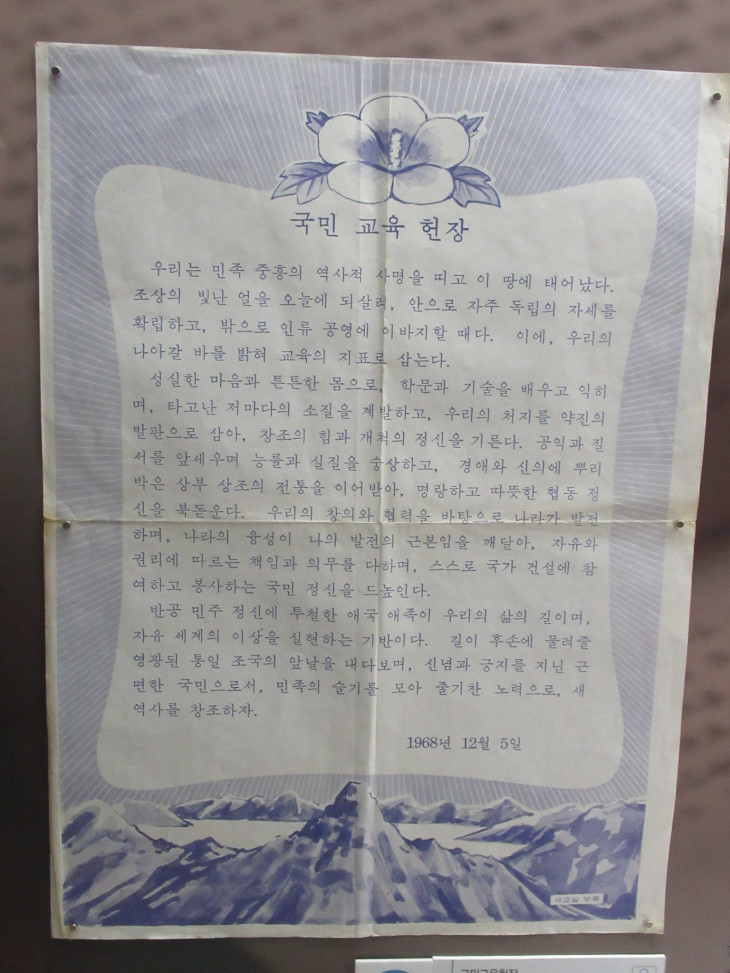 국민 교육 헌장
우리는 민족 중흥의 역사적 사명을 띠고 이 땅에 태어났다.
조상의 빛난 얼을 오늘에 되살려, 안으로 자주 독립의 자세를
확립하고, 밖으로 인류 공영에 이바지할 때다. 이에, 우리의
나아갈 바를 밝혀 교육의 지표로 삼는다.
성실한 마음과 튼튼한 몸으로, 학문과 기술을 배우고 익히
며, 타고난 저마다의 소질을 계발하고, 우리의 처지를 약진의
발판으로 삼아, 창조의 힘과 개척의 정신을 기른다. 공익과 질
서를 앞세우며 능률과 실질을 숭상하고, 경애와 신의에 뿌리
박은 상부 상조의 전통을 이어받아, 명랑하고 따뜻한 협동 정
신을 북돋운다. 우리의 창의와 협력을 바탕으로 나라가 발전
하며, 나라의 융성이 나의 발전의 근본임을 깨달아, 자유와
권리에 따르는 책임과 의무를 다하며, 스스로 국가 건설에 참
여하고 봉사하는 국민 정신을 드높인다.
반공 민주 정신에 투철한 애국 애족이 우리의 삶의 길이며,
자유 세계의 이상을 실현하는 기반이다. 길이 후손에 물려줄
영광된 통일 조국의 앞날을 내다보며, 신념과 긍지를 지닌 근
면한 국민으로서, 민족의 슬기를 모아 줄기찬 노력으로, 새
역사를 창조하자.
1968년 12월 5일
새교실 부록
국민교육헌장